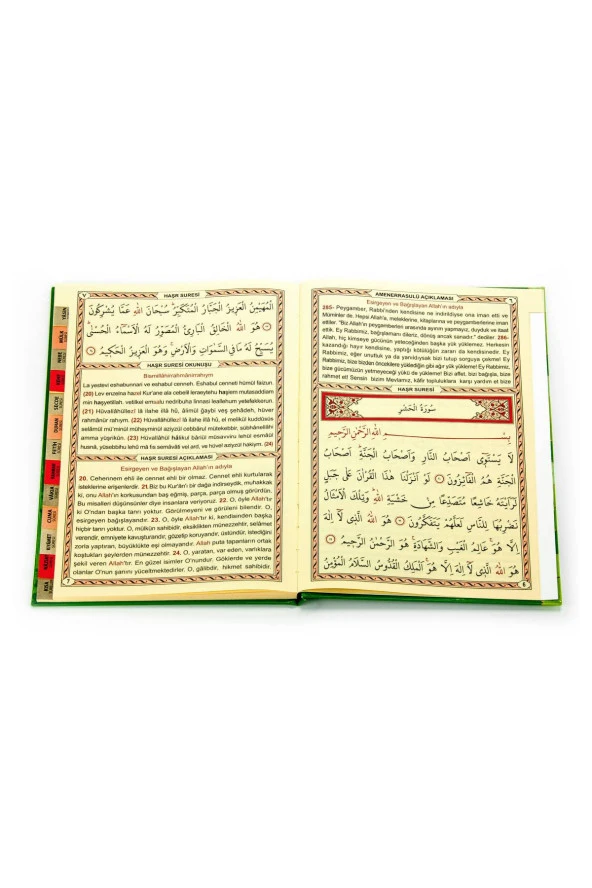 AMENERRASULÜ AÇIKLAMASI
٦
Esirgeyen ve Bağışlayan Allah'ın adıyla
285- Peygamber, Rabbi'nden kendisine ne indirildiyse ona iman etti ve
Müminler de. Hepsi Allah'a, meleklerine, kitaplarına ve peygamberlerine iman
etti. "Biz Allah'ın peygamberleri arasında ayırım yapmayız, duyduk ve itaat
ettik. Ey Rabbimiz, bağışlamanı dileriz, dönüş ancak sanadır." dediler. 286-
Allah, hiç kimseye gücünün yeteceğinden başka yük yüklemez. Herkesin
kazandığı hayır kendisine, yaptığı kötülüğün zararı da kendisinedir. Ey
Rabbimiz, eğer unuttuk ya da yanıldıysak bizi tutup sorguya çekme! Ey
Rabbimiz, bize bizden öncekilere yüklediğin gibi ağır yük yükleme! Ey Rabbimiz,
bize gücümüzün yetmeyeceği yükü de yükleme! Bizi affet, bizi bağışla, bize
rahmet et! Sensin bizim Mevlamız, kâfir topluluklara karşı yardım et bize
HAŞR SURESİ
سُورَةُ الْحَشْرِ
بِسْمِ اللهِ الرَّحْمٰنِ الرَّحِيمِ
لَا يَسْتَوِى اَصْحَابُ النَّارِ وَاَصْحَابُ الْجَنَّةِ اَصْحَابُ
الْجَنَّةِ هُمُ الْفَائِزُونَ لَوْ اَنْزَلْنَا هٰذَا الْقُرْاٰنَ عَلٰى جَبَلٍ
لَرَاَيْتَهُ خَاشِعًا مُتَصَدِّعًا مِنْ خَشْيَةِ اللهِ وَتِلْكَ الْاَمْثَالُ
نَضْرِبُهَا لِلنَّاسِ لَعَلَّهُمْ يَتَفَكَّرُونَ هُوَ اللهُ الَّذِى لَا اِلٰهَ
اِلَّا هُوَ عَالِمُ الْغَيْبِ وَالشَّهَادَةِ هُوَ الرَّحْمٰنُ الرَّحِيمُ
هُوَ اللهُ الَّذِى لَا اِلٰهَ اِلَّا هُوَ اَلْمَلِكُ الْقُدُّوسُ السَّلَامُ الْمُؤْمِنُ
6
٧
HAŞR SURESİ
الْمُهَيْمِنُ الْعَزِيزُ الْجَبَّارُ الْمُتَكَبِّرُ سُبْحَانَ اللهِ عَمَّا يُشْرِكُونَ
هُوَ اللهُ الْخَالِقُ الْبَارِئُ الْمُصَوِّرُ لَهُ الْاَسْمَاءُ الْحُسْنٰى
يُسَبِّحُ لَهُ مَا فِى السَّمٰوَاتِ وَالْاَرْضِ وَهُوَ الْعَزِيزُ الْحَكِيمُ
HAŞR SURESİ OKUNUŞU
Bismillâhirrahmânirrahıym
La yestevi eshabunnari ve eshabul cenneh. Eshabul cenneti hümül faizun.
(20) Lev enzelna hazel Kur'ane ala cebelil leraeytehu haşiem mutasaddiam
min haşyetillah. vetilkel emsulu nedribuha linnasi leallehum yetefekkerun.
(21) Hüvallâhüllezî lâ ilahe illâ hû, âlimül ğaybi veş şehâdeh, hüver
rahmânür rahıym. (22) Hüvallâhüllezî lâ ilahe illâ hû, el melikül kuddûsüs
selâmül mü'minül müheyminül aziyzül cebbârul mütekebbir, sübhânellâhi
amma yüşrikûn. (23) Hüvallâhül hâlikul bâriül müsavviru lehül esmâül
husnâ, yüsebbihu lehû mâ fis semâvâti vel ard, ve hüvel aziyzül hakiym. (24)
HAŞR SURESİ AÇIKLAMASI
Esirgeyen ve Bağışlayan Allah'ın adıyla
20. Cehennem ehli ile cennet ehli bir olmaz. Cennet ehli kurtularak
isteklerine erişenlerdir. 21.Biz bu Kur'ân'ı bir dağa indirseydik, muhakkak
ki, onu Allah'ın korkusundan baş eğmiş, parça, parça olmuş görürdün.
Bu misalleri düşünsünler diye insanlara veriyoruz. 22. O, öyle Allah'tır
ki O'ndan başka tanrı yoktur. Görülmeyeni ve görüleni bilendir. O,
esirgeyen bağışlayandır. 23. O, öyle Allah'tır ki, kendisenden başka
hiçbir tanrı yoktur. O, mülkün sahibidir, eksiklikten münezzehtir, selâmet
verendir, emniyete kavuşturandır, gözetip koruyandır, üstündür, istediğini
zorla yaptıran, büyüklükte eşi olmayandır. Allah puta tapanların ortak
koştukları şeylerden münezzehtir. 24. O, yaratan, var eden, varlıklara
şekil veren Allah'tır. En güzel isimler O'nundur. Göklerde ve yerde
olanlar O'nun şanını yüceltmektedirler. O, gâlibdir, hikmet sahibidir.
7
YASİN
MÜLK
NEBE
SECDE
DUHAN
FETİH
CUMA
KIYAMET